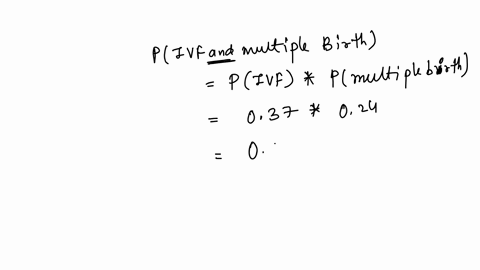 P(IVF and multiple Birth)
= P(IVF) * P(multiple birth)
= 0.37 * 0.24
= 0.